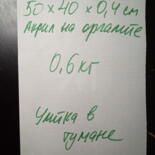 50 х 40 х 0,4 см
Акрил на оргалите
0,6 кг
Улитка в
тумане